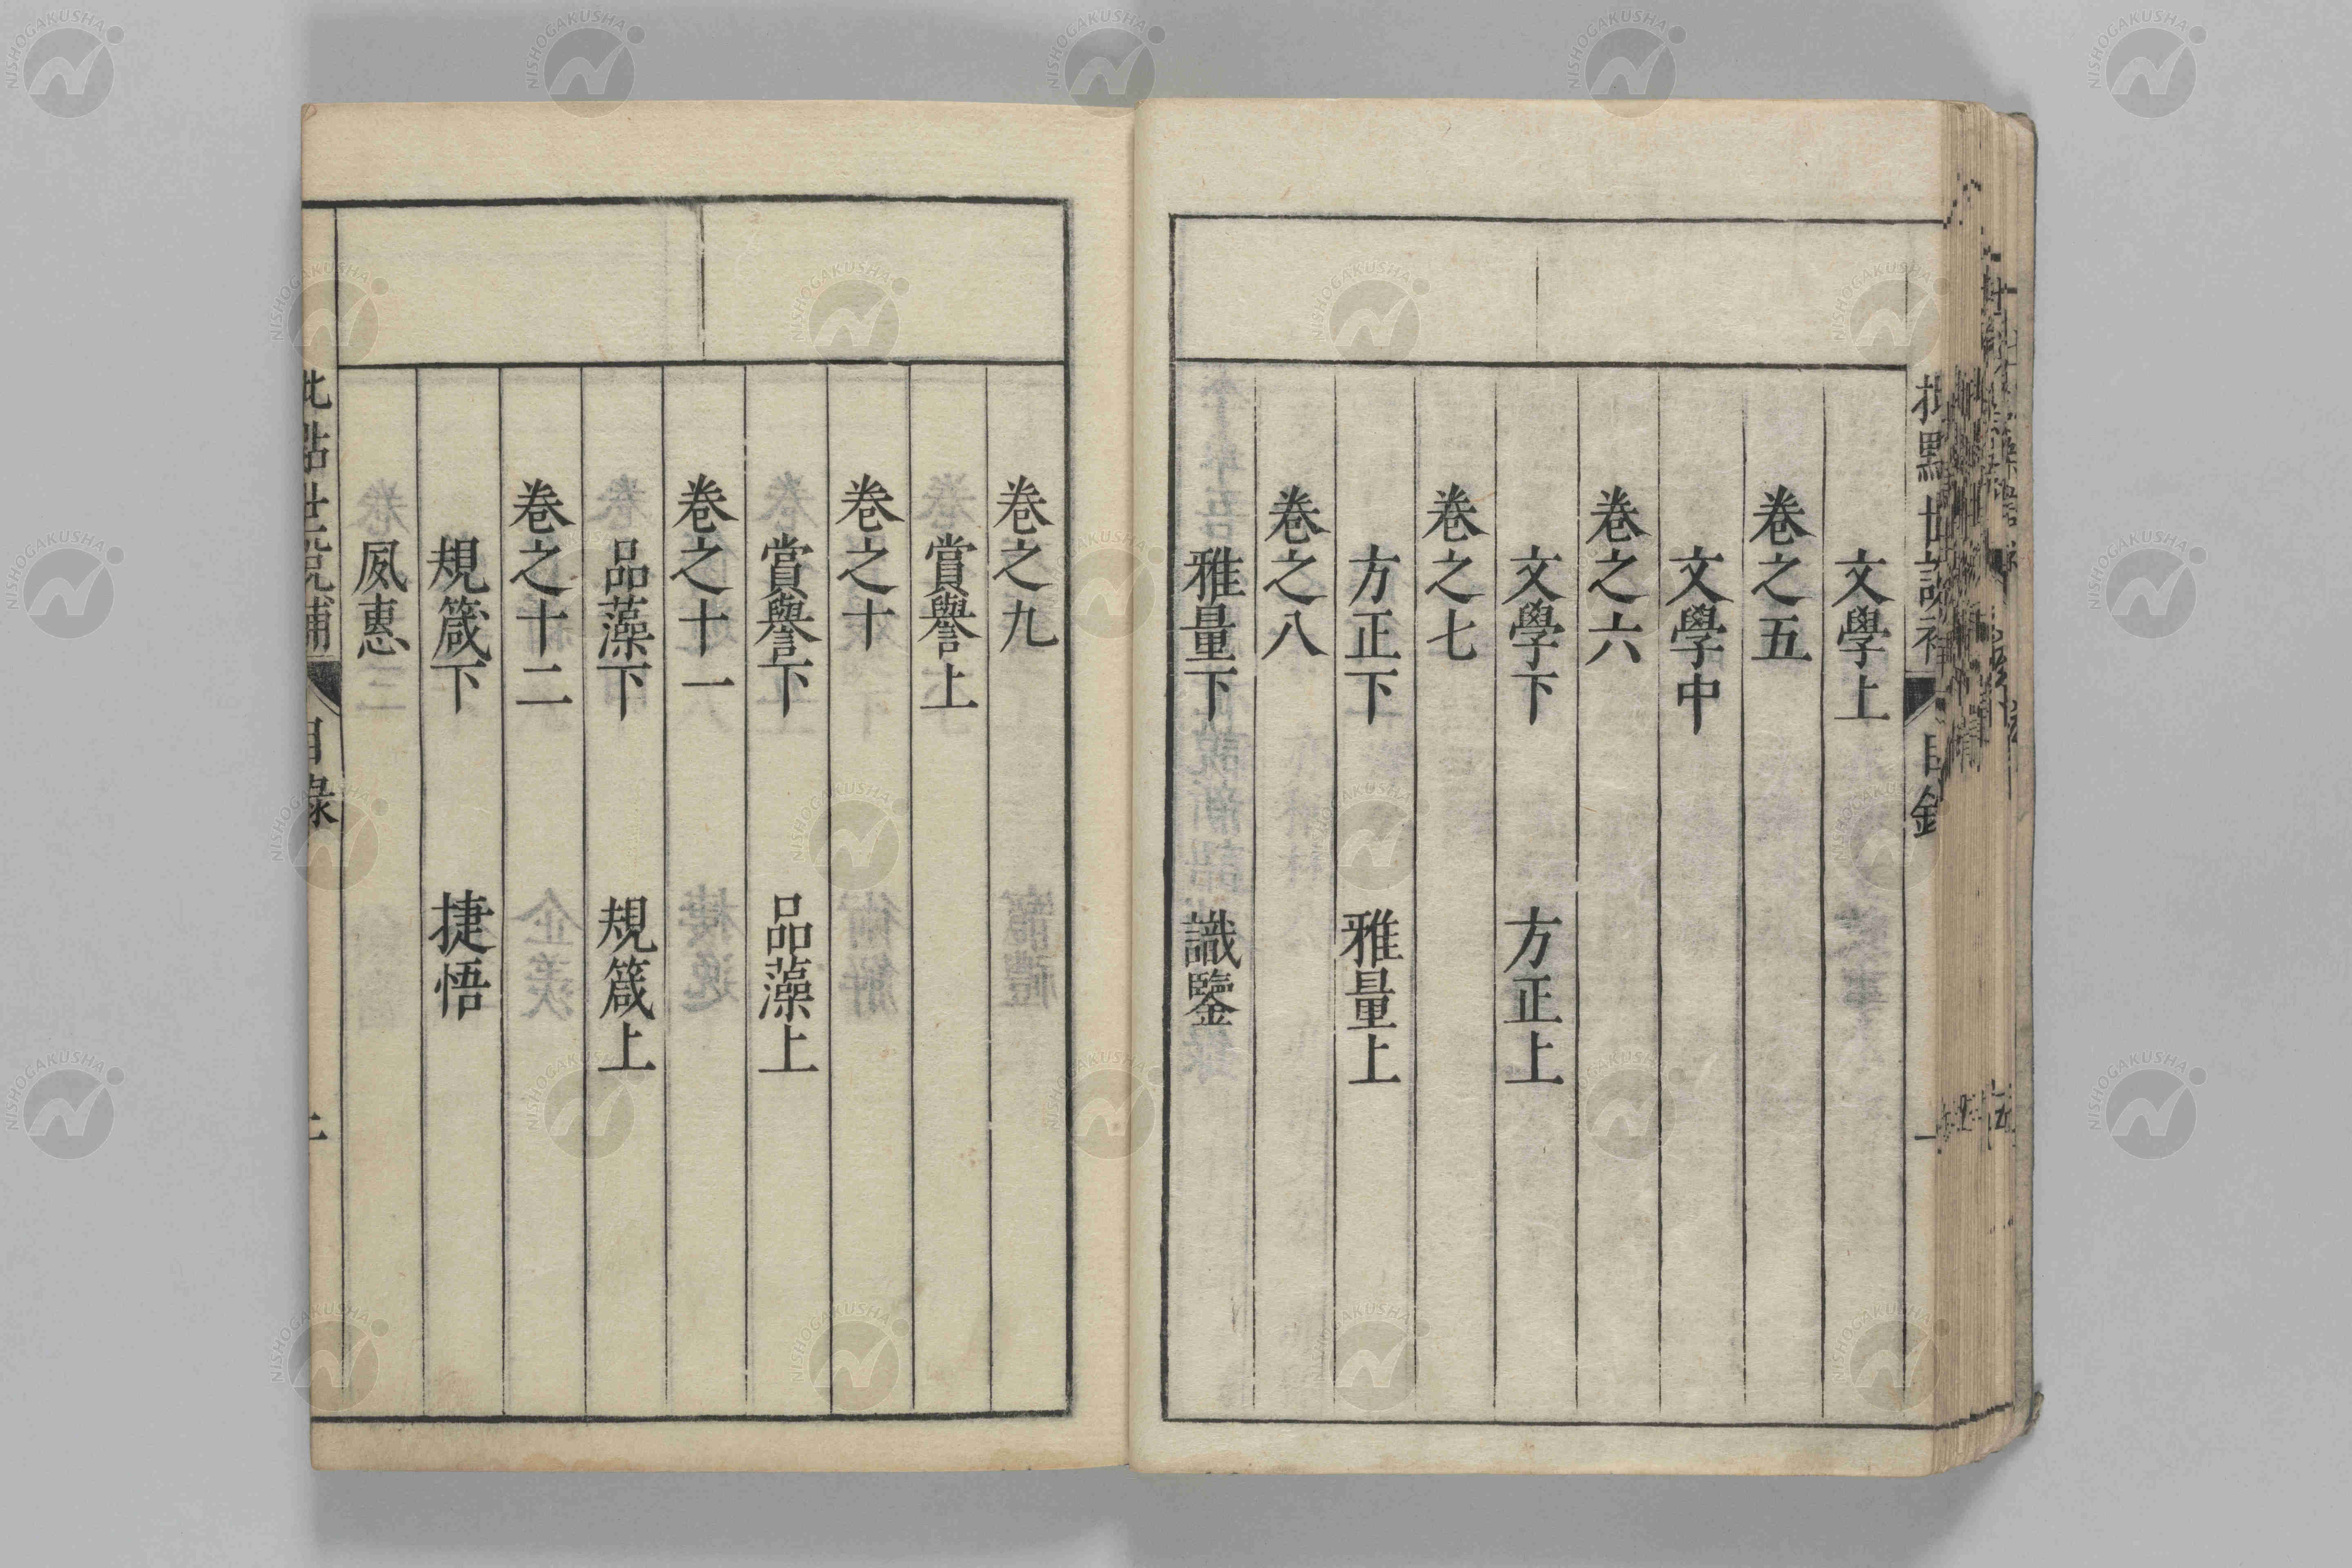 文學上
卷之五
文學中
卷之六
文學下 方正上
卷之七
方正下 雅量上
卷之八
雅量下 識鑒
卷之九
賞譽上
卷之十
賞譽下 品藻上
卷之十一
品藻下 規箴上
卷之十二
規箴下 捷悟
夙惠
批點世說補 目錄
NISHOGAKUSHA